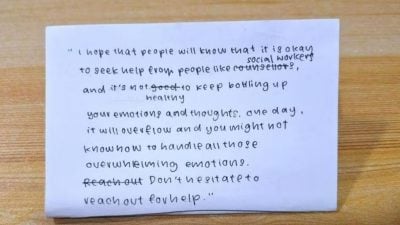 " I hope that people will know that it is okay
to seek help from people like counsellors, social workers
and it's not good healthy to keep bottling up
your emotions and thoughts. One day,
it will overflow and you might not
know how to handle all those
overwhelming emotions.
Reach out Don't hesitate to
reach out for help. "